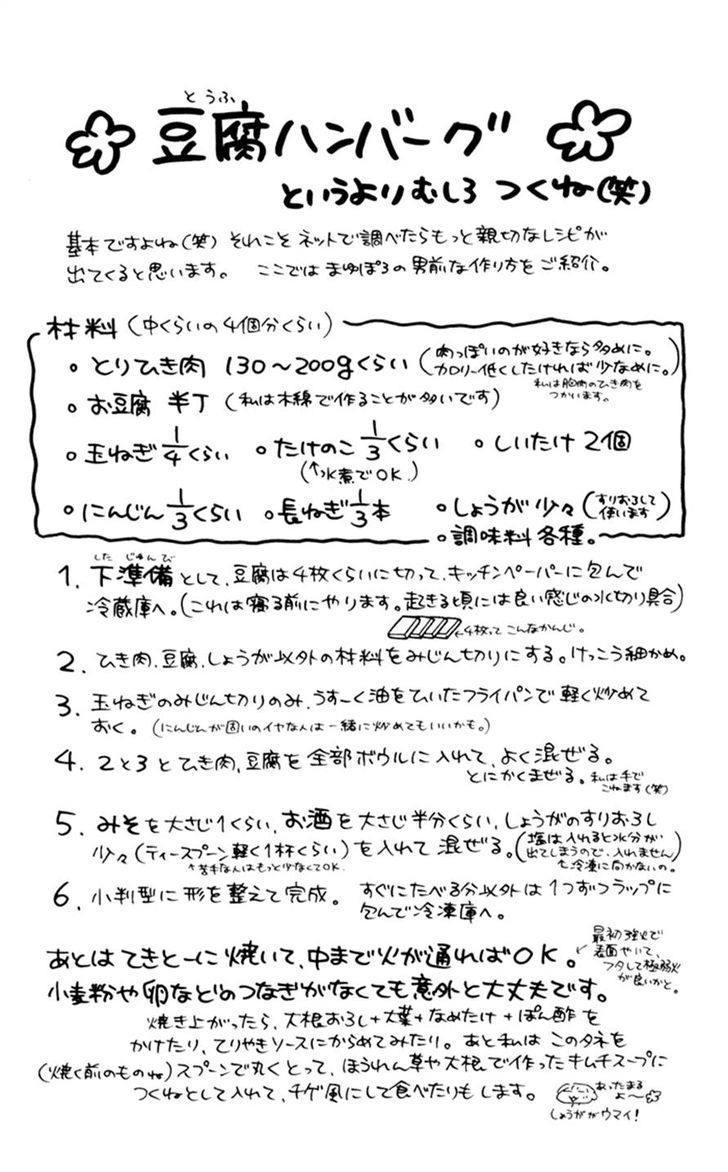 とうふ
豆腐ハンバーグ
というよりむしろ つくね(笑)
基本ですよね(笑) それこそ ネットで調べたらもっと親切なレシピが
出てくると思います。 ここでは まゆぽろの男前な作り方を ご紹介。
材料 (中くらいの4個分くらい)
・とりひき肉 130〜200gくらい (肉っぽいのが好きなら多めに。
カロリー低くしたければ少なめに。)
私は胸肉のひき肉を
つかいます。
・お豆腐 半丁 (私は木綿で作ることが多いです)
・玉ねぎ 1/4 くらい ・たけのこ 1/3 くらい ・しいたけ 2個
(↑水煮でOK.)
・にんじん 1/3 くらい ・長ねぎ 1/3 本 ・しょうが 少々 (すりおろして
使います)
・調味料 各種。
した じゅんび
1. 下準備として、豆腐は4枚くらいに切って、キッチンペーパーに包んで
冷蔵庫へ。(これは寝る前にやります。起きる頃には良い感じの水切り具合)
←4枚って こんなかんじ。
2. ひき肉、豆腐、しょうが以外の材料をみじん切りにする。けっこう細かめ。
3. 玉ねぎのみじん切りのみ、うすーく油をひいたフライパンで 軽く炒めて
おく。 (にんじんが固いのイヤな人は一緒に炒めてもいいかも。)
4. 2と3と ひき肉、豆腐を 全部ボウルに入れて、よく混ぜる。
とにかくまぜる。 私は手で
こねます(笑)
5. みそを大さじ1くらい、お酒を大さじ半分くらい、しょうがのすりおろし
少々 (ティースプーン軽く1杯くらい) を入れて 混ぜる。(塩は入れると水分が
出てしまうので、入れません)
↑苦手な人はもっと少なくてOK.
↑冷凍に向かないの。
6. 小判型に形を整えて完成。 すぐにたべる分以外は 1つずつラップに
包んで冷凍庫へ。
あとは てきとーに 焼いて、中まで火が通ればOK。
↙最初強火で
表面やいて、
フタして極弱火
が良いかと。
小麦粉や卵などのつなぎがなくても意外と大丈夫です。
焼き上がったら、大根おろし+大葉+なめたけ+ぽん酢を
かけたり、てりやきソースにからめてみたり。あと私は このタネを
(焼く前のものね) スプーンで丸くとって、ほうれん草や大根で作ったキムチスープに
つくねとして入れて、チゲ風にして食べたりもします。
あったまる
よ〜
しょうががウマイ!